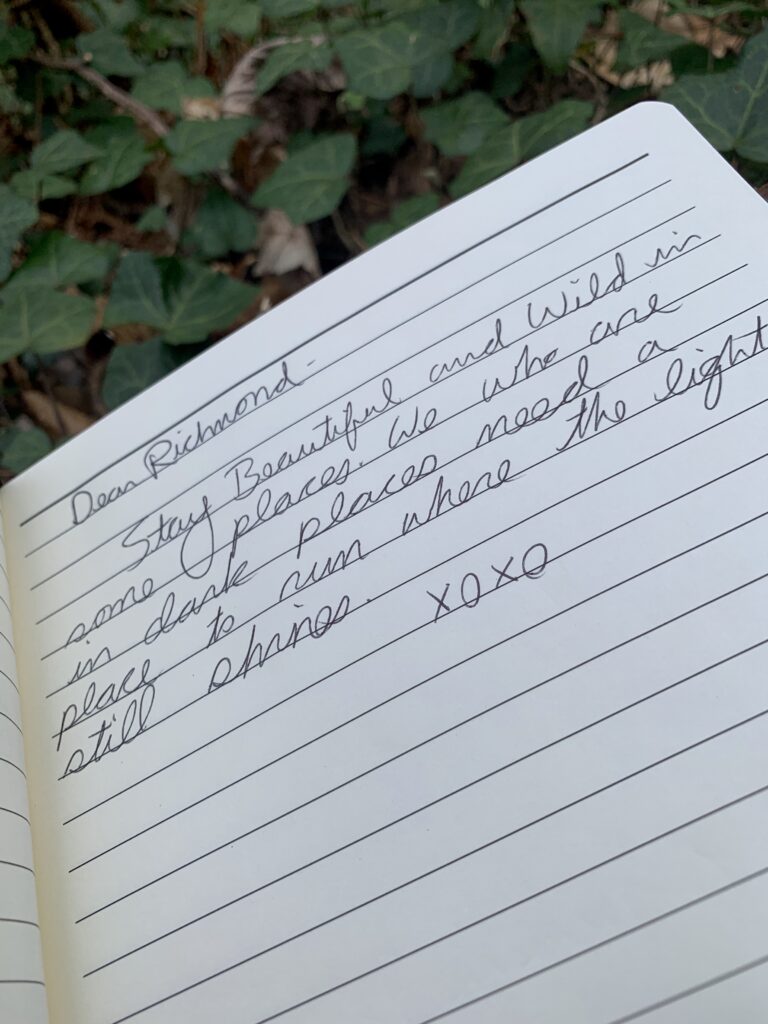 Dear Richmond-
Stay Beautiful and Wild in
some places. We who are
in dark places need a
place to run where the light
still shines. XOXO